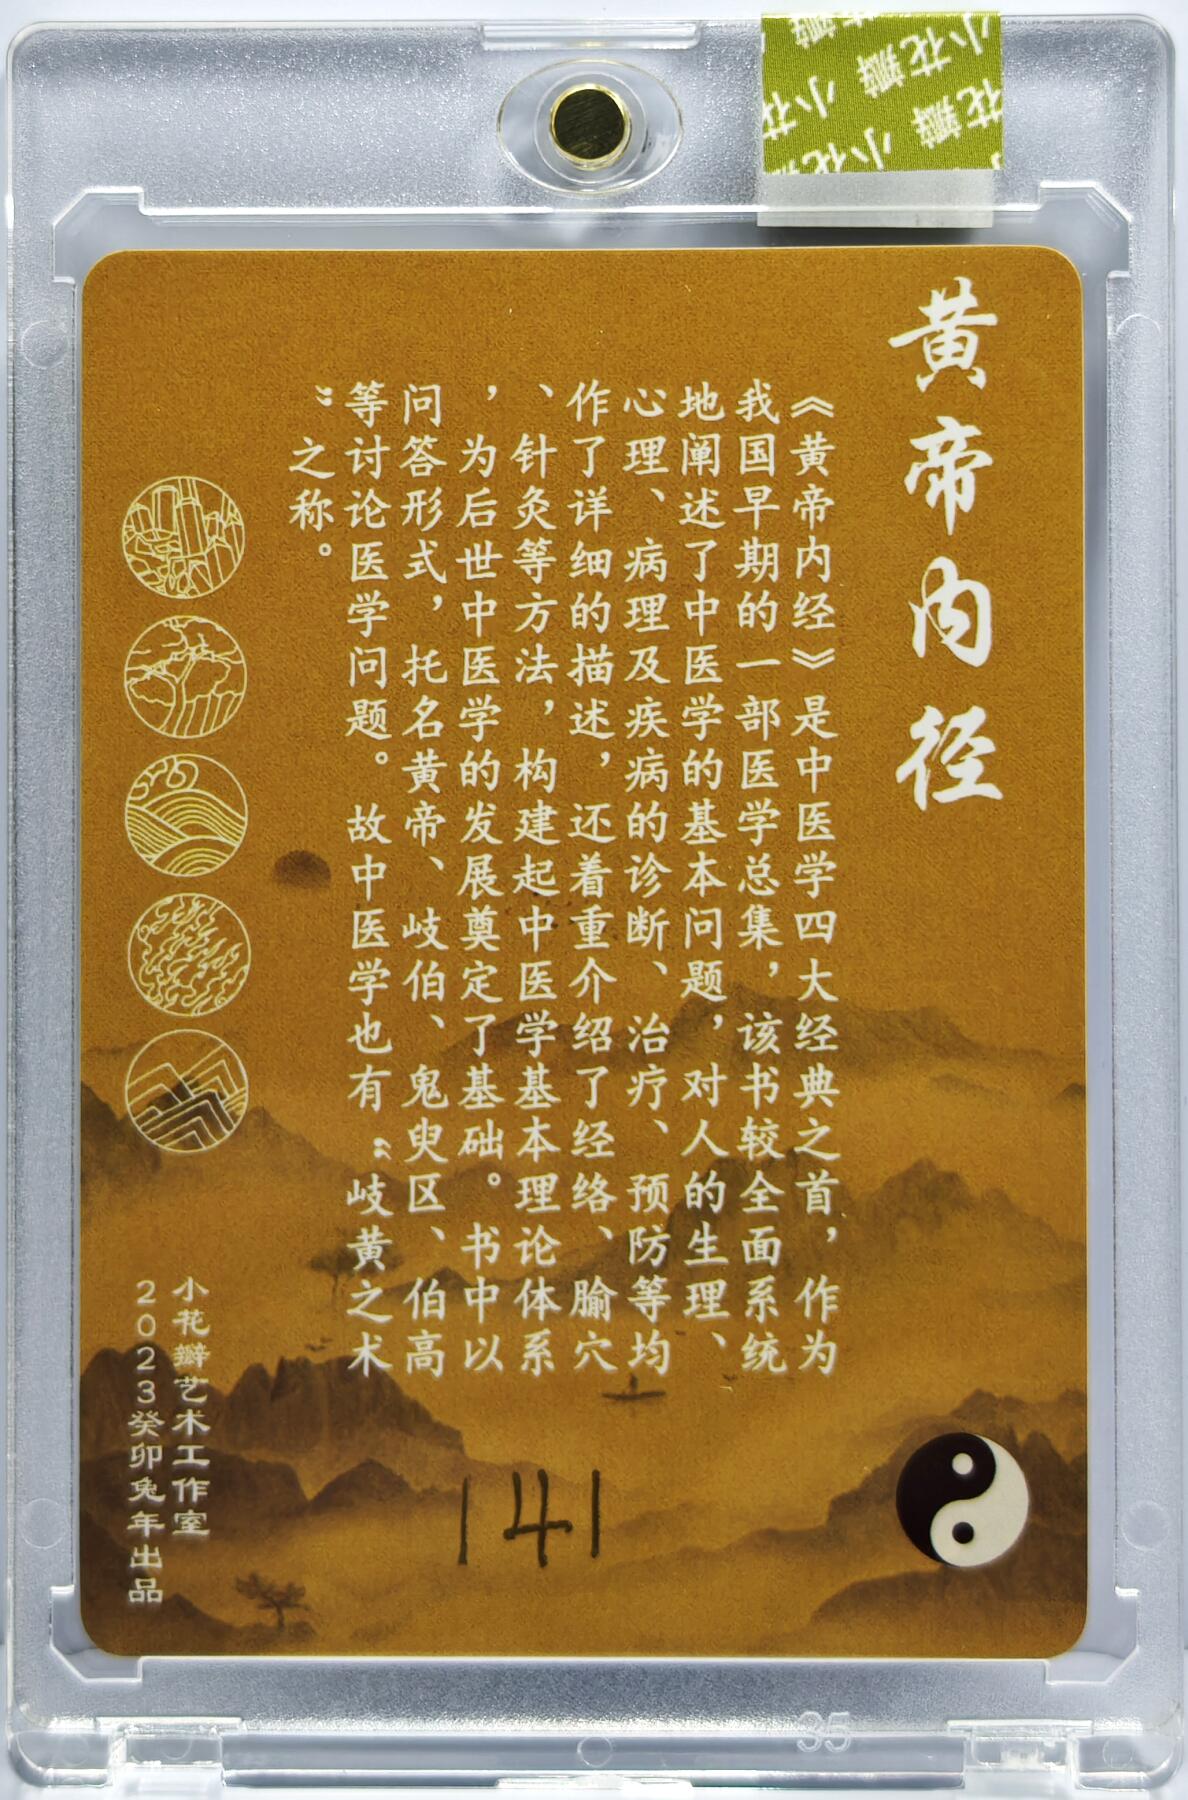 小花瓣
小花瓣
小花瓣
黄帝内径
《黄帝内经》是中医学四大经典之首，作为
我国早期的一部医学总集，该书较全面系统
地阐述了中医学的基本问题，对人的生理、
心理、病理及疾病的诊断、治疗、预防等均
作了详细的描述，还着重介绍了经络、腧穴
、针灸等方法，构建起中医学基本理论体系
，为后世中医学的发展奠定了基础。书中以
问答形式，托名黄帝、岐伯、鬼臾区、伯高
等讨论医学问题。故中医学也有“岐黄之术
”之称。
小花瓣艺术工作室
2023癸卯兔年出品
141
35